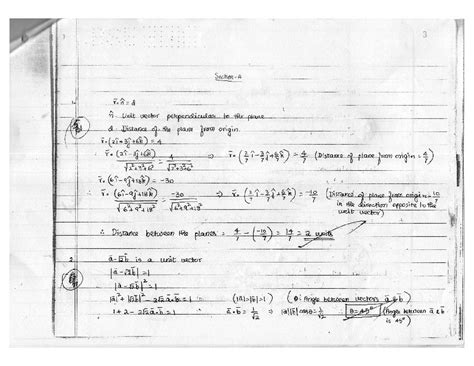 3
Section-A
1.
r̄·n̂ = d
n̂ Unit vector perpendicular to the plane
d Distance of the plane from origin.
r̄·(2î-3ĵ+6k̂) = 4
r̄·(2î-3ĵ+6k̂)/√(2²+3²+6²) = 4/√(2²+3²+6²) ⇒ r̄·(2/7 î - 3/7 ĵ + 6/7 k̂) = 4/7 (Distance of plane from origin = 4/7)
r̄·(6î-9ĵ+18k̂) = -30
∴ r̄·(6î-9ĵ+18k̂)/√(6²+9²+18²) = -30/√(6²+9²+18²) ⇒ r̄·(2/7 î - 3/7 ĵ + 6/7 k̂) = -10/7 (Distance of plane from origin = 10/7 in the direction opposite to the unit vector)
∴ Distance between the planes = 4/7 - (-10/7) = 14/7 = 2 units
2. ā-√2b̄ is a unit vector
|ā-√2b̄| = 1
|ā-√2b̄|² = 1
|ā|²+|√2b̄|² - 2√2ā·b̄ = 1 (|ā|=|b̄|=1) (θ: Angle between vectors ā & b̄)
1+2-2√2ā·b̄ = 1 ā·b̄ = 1/√2 ⇒ |ā||b̄|cosθ = 1/√2 θ = 45° (Angle between ā & b̄ is 45°)